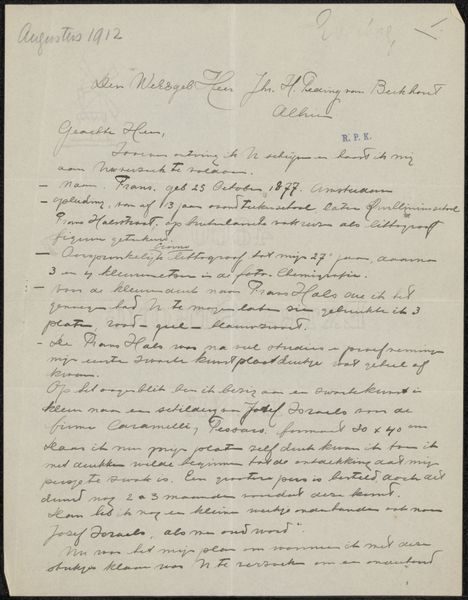 Augustus 1912
Den WelEdgel Heer Jhr. H. Teding van Berkhout
Alhier
R. P. K.
Geachte Heer,
ontving ik U schrijven en haast ik mij
aan Uw verzoek te voldoen.
– naam. Frans, geb 25 October 1877. Amsterdam
– opleiding, van af 13 jaar avondteekenschool, later Quellinusschool
Frans Halsstraat, op als lithograaf
figuur geteekend.
– Oorspronkelijk lithograaf tot mijn 27e jaar, daarna
3 en 4 kleurenetsen in de foto-Chemigrafie.
– voor de kleurendruk naar Frans Hals die ik het
genoegen had U te mogen laten zien gebruikte ik 3
platen, rood – geel – blauwzwart.
– De Frans Hals was na veel studien en proefnemingen
mijn eerste zwarte kunst plaat die wat geheel af
kwam.
Op het oogenblik ben ik bezig aan een zwartekunst in
kleur naar een schilderij van Josef Israels voor de
firma Caramelli, Tessaro, formaat 30 x 40 cm
Daar ik nu mijn platen zelf druk kwam ik toen ik
met drukken wilde beginnen tot de ontdekking dat mijn
pers te zwak is. Een grootere pers is besteld doch dit
duurt nog 2 a 3 maanden voordat deze komt.
heb ik nog een kleine werkje onderhanden ook naar
Josef Israels, "als men oud word".
Nu was het mijn plan om wanneer ik met deze
stukjes klaar was U te verzoeken om een onderhoud